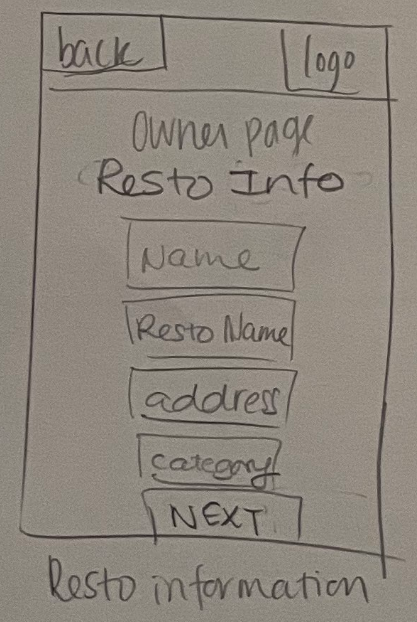 back logo
Owner page
Resto Info
Name
Resto Name
address
category
NEXT
Resto information